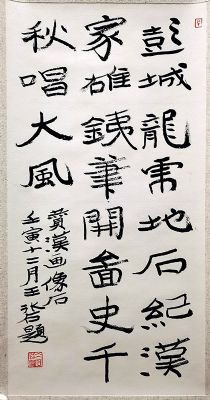 彭城龍虎地石紀漢
家雄銕筆開畫史千
秋唱大風
贊漢画像石
壬寅十二月題